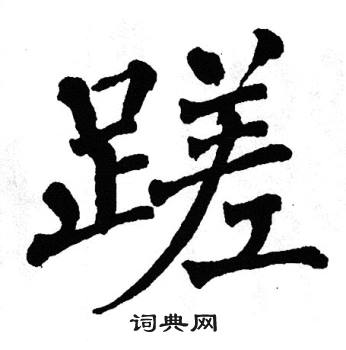 蹉
词典网